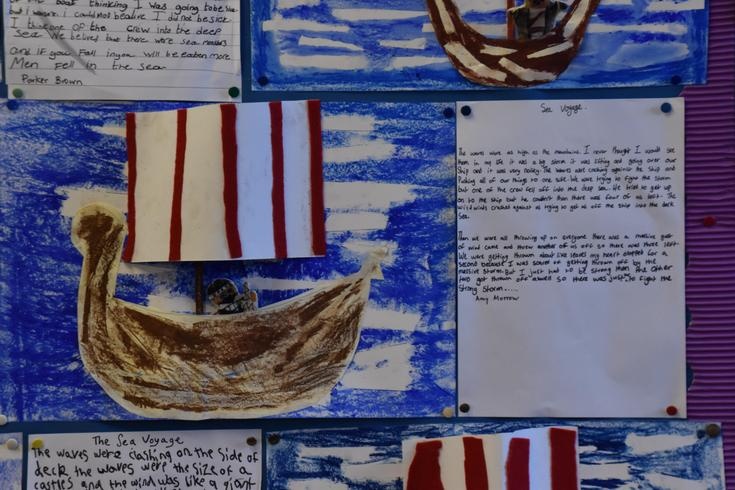 of the boat thinking I was going to be sick
but I wasn't I could not beelive I did not be sick
I threw one of the crew into the deep
Sea. We belived but there were sea monsters
and if you fall in you will be eaten more
Men fell in the sea
Parker Brown
Sea Voyage.
The waves were as high as the mountains. I never thought I would see
them in my life it was a big storm it was lifting and going over our
ship and it was very noisey. The waves were crashing against the ship and
Picking all of our things to one side. We were trying to fight the storm
but one of the crew fell off into the deep sea. He tried to get up
on to the ship but he couldn't than there was four of us left. The
wild winds crashed against us trying to get us off the ship into the dark
sea.
Then we were all throwing up on everyone there was a massive gust
of wind came and threw another of us off so there was three left.
We were getting thrown about like leaves my heart stopped for a
second because I was scared of getting thrown off by the
massive storm. But I just had to be strong than the other
two got thrown off aswell so there was just me to fight the
strong storm.....
Amy Morrow
The Sea Voyage
The waves were clashing on the side of
deck the waves were the size of a
castles and the wind was like a giant